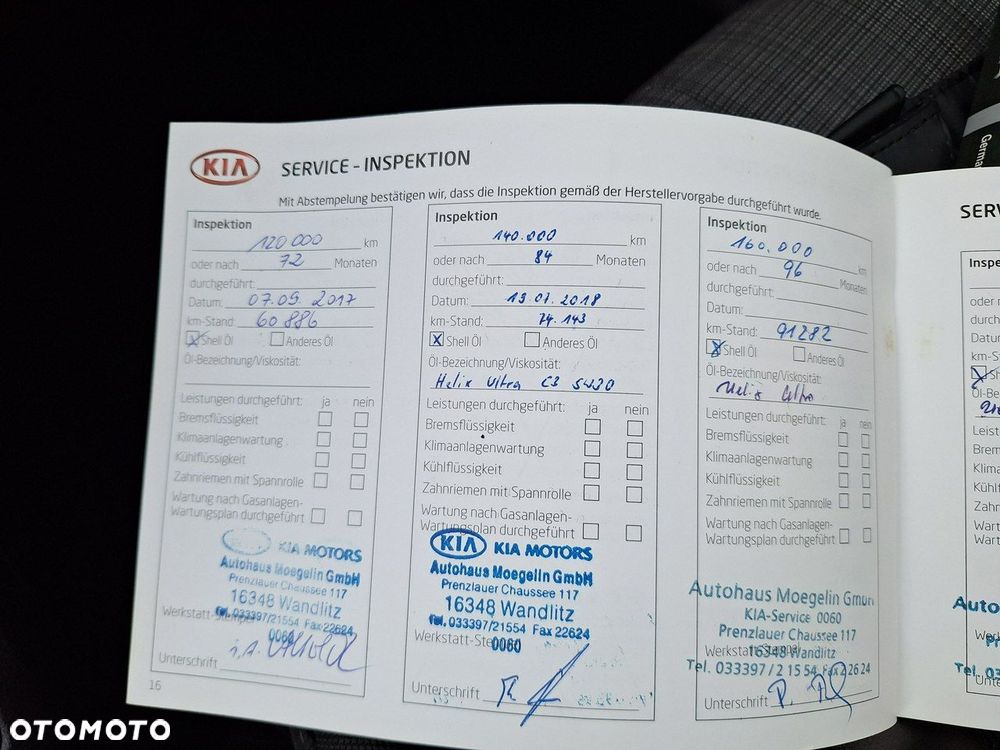 KIA SERVICE - INSPEKTION
Mit Abstempelung bestätigen wir, dass die Inspektion gemäß der Herstellervorgabe durchgeführt wurde.
Inspektion
120 000 km
oder nach 72 Monaten
durchgeführt:
Datum: 07.09.2017
km-Stand: 60 886
Shell Öl Anderes Öl
Öl-Bezeichnung/Viskosität:
Leistungen durchgeführt: ja nein
Bremsflüssigkeit
Klimaanlagenwartung
Kühlflüssigkeit
Zahnriemen mit Spannrolle
Wartung nach Gasanlagen-
Wartungsplan durchgeführt
KIA MOTORS
Autohaus Moegelin GmbH
Prenzlauer Chaussee 117
16348 Wandlitz
Tel. 033397/21554 Fax 22624
0060
Werkstatt-Stempel
Unterschrift
16
Inspektion
140.000 km
oder nach 84 Monaten
durchgeführt:
Datum: 19.07.2018
km-Stand: 74.143
X Shell Öl Anderes Öl
Öl-Bezeichnung/Viskosität:
Helix Ultra C3 5W30
Leistungen durchgeführt: ja nein
Bremsflüssigkeit
Klimaanlagenwartung
Kühlflüssigkeit
Zahnriemen mit Spannrolle
Wartung nach Gasanlagen-
Wartungsplan durchgeführt
KIA KIA MOTORS
Autohaus Moegelin GmbH
Prenzlauer Chaussee 117
16348 Wandlitz
Tel. 033397/21554 Fax 22624
Werkstatt-Ste 0060
Unterschrift
Inspektion
160.000 km
oder nach 96 Monaten
durchgeführt:
Datum:
km-Stand: 91282
Shell Öl Anderes Öl
Öl-Bezeichnung/Viskosität:
Helix Ultra
Leistungen durchgeführt: ja nein
Bremsflüssigkeit
Klimaanlagenwartung
Kühlflüssigkeit
Zahnriemen mit Spannrolle
Wartung nach Gasanlagen-
Wartungsplan durchgeführt
Autohaus Moegelin GmbH
KIA-Service 0060
Prenzlauer Chaussee 117
16348 Wandlitz
Tel. 033397 / 2 15 54 Fax 2 26 24
Unterschrift
SERV
Inspe
oder n
durch
Datum
km-St
Öl-Be
Leist
Brem
Klima
Kühlf
Zahn
Wart
Wart
Auto
Tel. 03
Unte
Germa
OTOMOTO